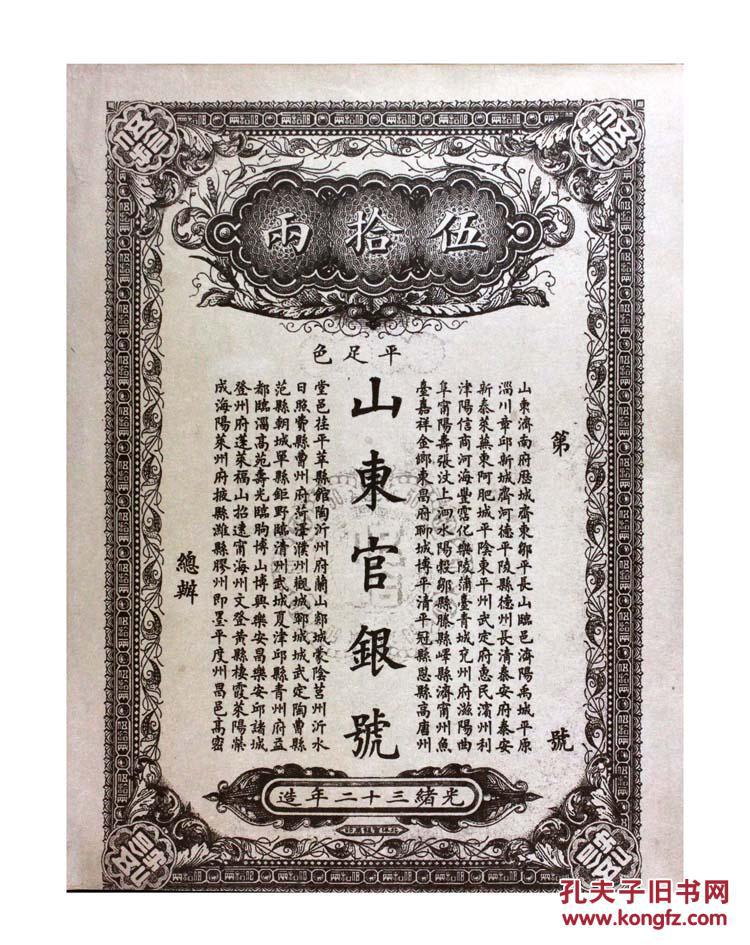 伍拾兩
平足色
第 號
山東濟南府歷城齊東鄒平長山臨邑濟陽禹城平原
淄川章邱新城齊河德平陵縣德州長清泰安府泰安
新泰萊蕪東阿肥城平陰東平州武定府惠民濱州利
津陽信商河海豐霑化樂陵蒲臺青城兗州府滋陽曲
阜甯陽壽張汶上泗水陽穀鄒縣滕縣嶧縣濟甯州魚
臺嘉祥金鄉東昌府聊城博平清平冠縣恩縣高唐州
山東官銀號
堂邑茌平莘縣館陶沂州府蘭山郯城蒙陰莒州沂水
日照費縣曹州府菏澤濮州觀城鄆城城武定陶曹縣
范縣朝城單縣鉅野臨清州武城夏津邱縣青州府益
都臨淄高苑壽光臨朐博山博興樂安昌樂安邱諸城
登州府蓬萊福山招遠甯海州文登黃縣棲霞萊陽榮
成海陽萊州府掖縣濰縣膠州即墨平度州昌邑高密
總辦
光緒三十二年造
孔夫子旧书网
www.kongfz.com